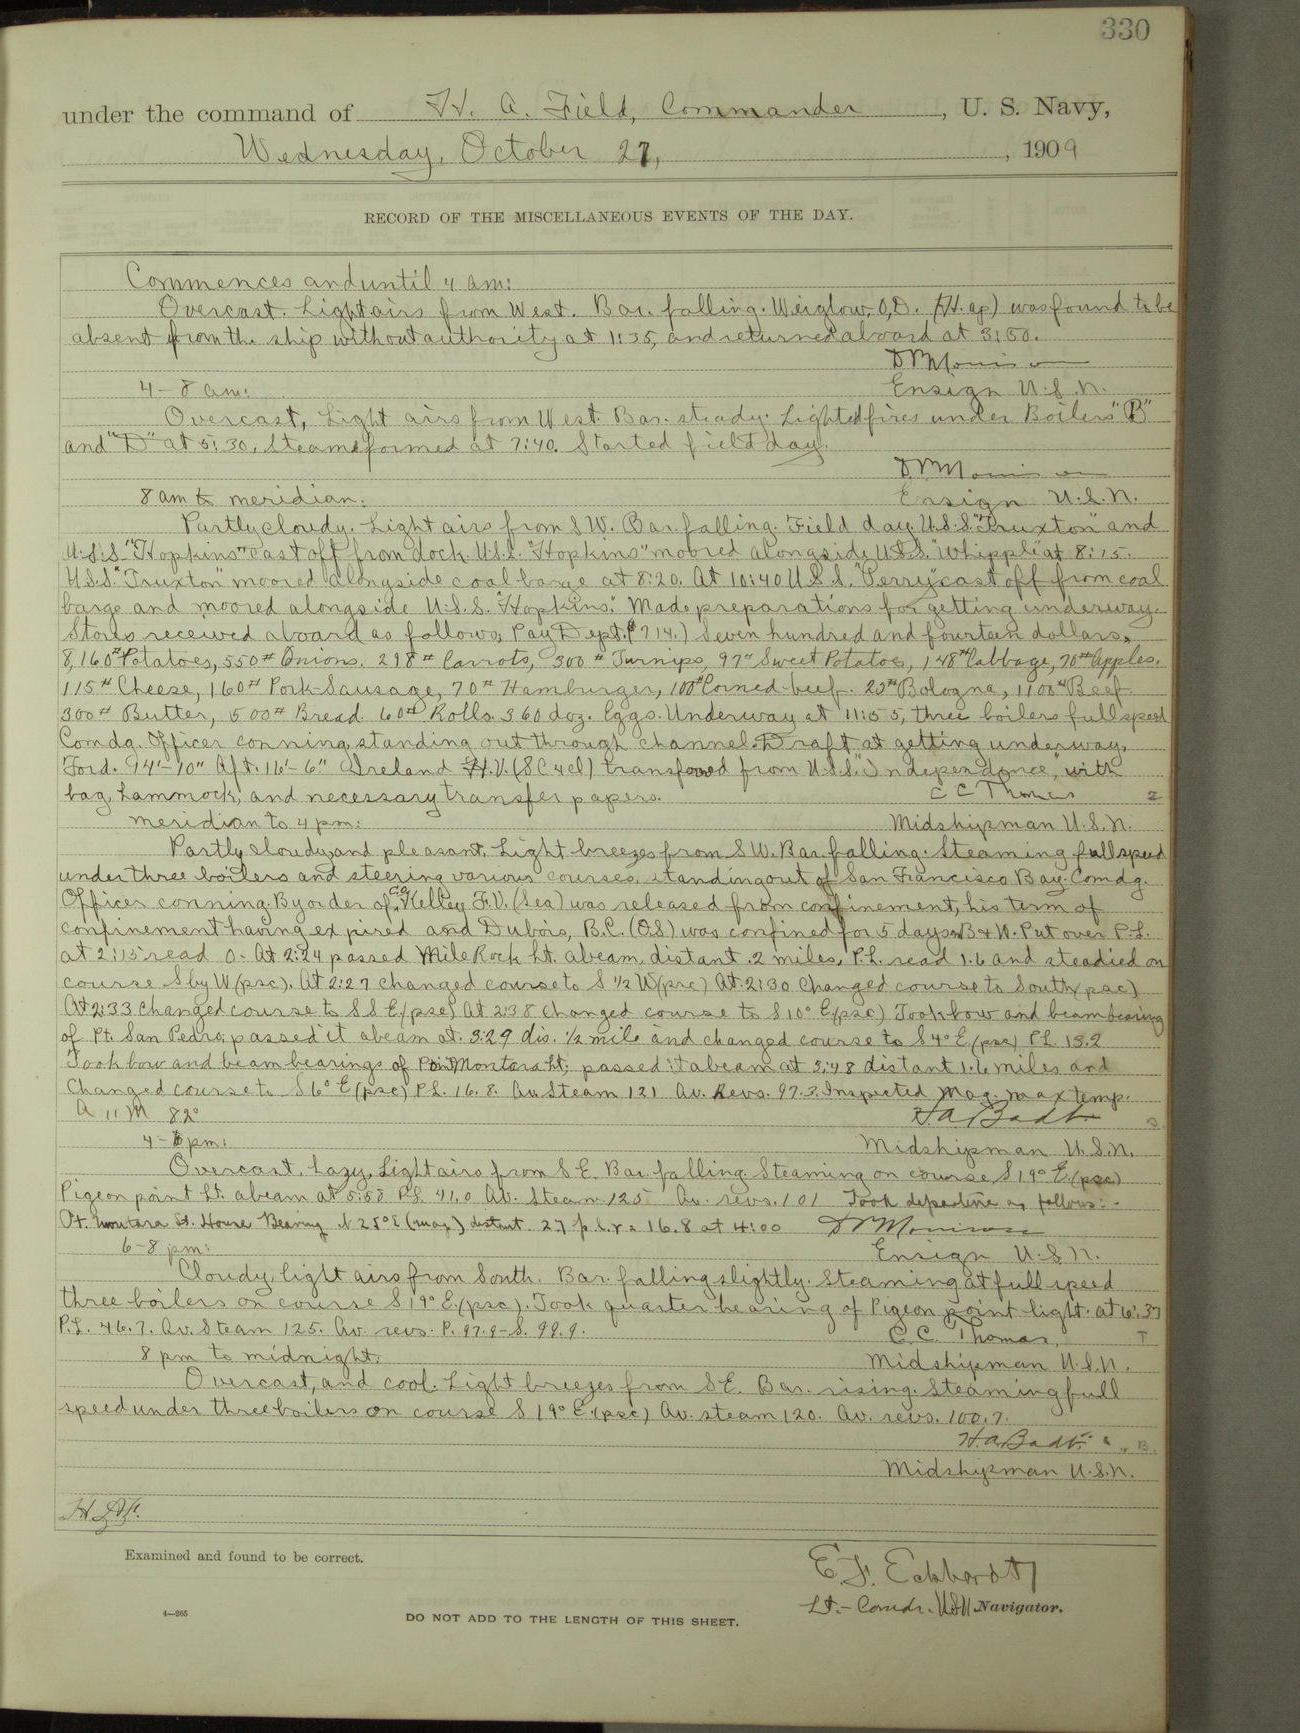 330
under the command of H. A. Field, Commander, U. S. Navy,
Wednesday, October 27, 1909
RECORD OF THE MISCELLANEOUS EVENTS OF THE DAY.
Commences and until 4 am:
Overcast. Light airs from West. Bar. falling. Weiglow, O,D. (H. ap) was found to be
absent from the ship without authority at 1:35, and returned aboard at 3:50.
D M Morrison
4-8 am: Ensign U.S.N.
Overcast, Light airs from West. Bar. steady. Lighted fires under Boilers "B"
and "D" at 5:30, Steam formed at 7:40. Started field day.
D M Morrison
8 am to meridian: Ensign U.S.N.
Partly cloudy. Light airs from SW. Bar. falling. Field day. U.S.S. "Truxton" and
U.S.S. "Hopkins" cast off from dock. U.S.S. "Hopkins" moored alongside U.S.S. "Whipple" at 8:15.
U.S.S. "Truxton" moored alongside coal barge at 8:20. At 10:40 U.S.S. "Perry" cast off from coal
barge and moored alongside U.S.S. "Hopkins." Made preparations for getting underway.
Stores received aboard as follows, Pay Dept. ($714.) Seven hundred and fourteen dollars,
8,160# Potatoes, 550# Onions. 298# Carrots, 300# Turnips, 97# Sweet Potatoes, 148# Cabbage, 70# Apples.
115# Cheese, 160# Pork Sausage, 70# Hamburger, 100# Corned-beef. 25# Bologna, 1100# Beef
300# Butter, 500# Bread. 60# Rolls. 360 doz. Eggs. Underway at 11:55, three boilers full speed
Comdg. Officer conning, standing out through channel. Draft at getting underway,
Ford. 14'-10" Aft. 16'-6" Ireland H.V. (SC 4cl) transferred from U.S.S. "Independence", with
bag, hammock, and necessary transfer papers. C C Thomas
meridian to 4 pm: Midshipman U.S.N.
Partly cloudy and pleasant. Light breezes from SW. Bar. falling. Steaming full speed
under three boilers and steering various courses, standing out of San Francisco Bay. Comdg.
Officer conning. By order of C.O. Kelley F.V. (Sea) was released from confinement, his term of
confinement having expired and Dubois, B.C. (O.S) was confined for 5 days on B & W. Put over P.L.
at 2:15 read 0. At 2:24 passed Mile Rock Lt. abeam, distant .2 miles, P.L. read 1.6 and steadied on
course S by W (psc). At 2:27 changed course to S ½ W (psc) At 2:30 Changed course to South (psc)
At 2:33 changed course to SSE (psc) At 2:38 changed course to S 10° E (psc) Took bow and beam bearing
of Pt. San Pedro, passed it abeam at 3:29 dis. ½ mile and changed course to S 4° E. (psc) P.L. 13.2
Took bow and beam bearings of Point Montara Lt; passed it abeam at 3:48 distant 1.6 miles and
Changed course to S 6° E (psc) P.L. 16.8. Av. Steam 121 Av. Revs. 97.3. Inspected Mag. max temp.
A 11 M 82° H A Badt
4-6 pm: Midshipman U.S.N.
Overcast, hazy, Light airs from S E. Bar. falling. Steaming on course S 19° E. (psc)
Pigeon point Lt. abeam at 5:58 P.L. 41.0 Av. Steam 125 Av. revs. 101 Took departure as follows:-
Pt. Montara Lt. House Bearing N 25° E (mag) distant 2.7 p.l.r. = 16.8 at 4:00 D M Morrison
6-8 pm: Ensign U.S.N.
Cloudy, light airs from South. Bar. falling slightly. Steaming at full speed
three boilers on course S 19° E. (psc). Took quarter bearing of Pigeon point light. at 6:37
P.L. 46.7. Av. Steam 125. Av. revs. P. 97.9-S. 99.9. C. C. Thomas,
8 pm to midnight. Midshipman U.S.N.
Overcast, and cool. Light breezes from SE. Bar. rising. Steaming full
speed under three boilers on course S 19° E. (psc) Av. steam 120. Av. revs. 100.7.
H. A Badt
Midshipman U.S.N.
Examined and found to be correct.
E. F. Eckhardt
Lt.-Comdr. USN Navigator.
4—265
DO NOT ADD TO THE LENGTH OF THIS SHEET.